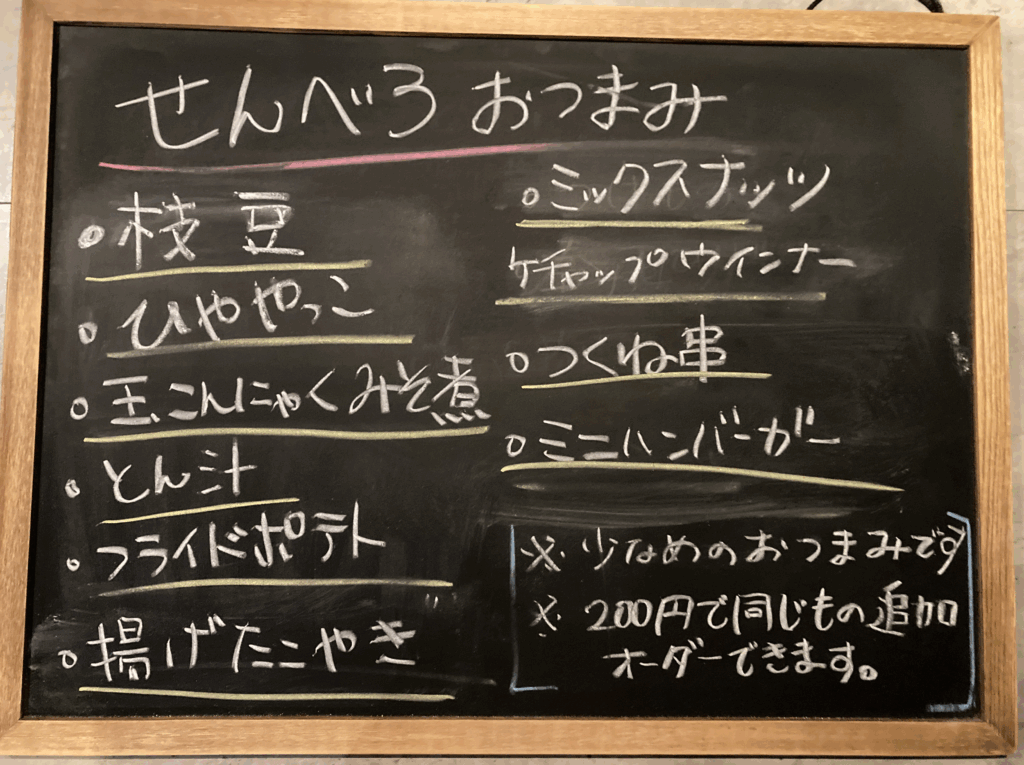 せんべろ おつまみ
• 枝豆
• ひややっこ
• 玉こんにゃくみそ煮
• とん汁
• フライドポテト
• 揚げたこやき
• ミックスナッツ
ケチャップウインナー
• つくね串
• ミニハンバーガー
※ 少なめのおつまみです
※ 200円で同じもの追加
オーダーできます。